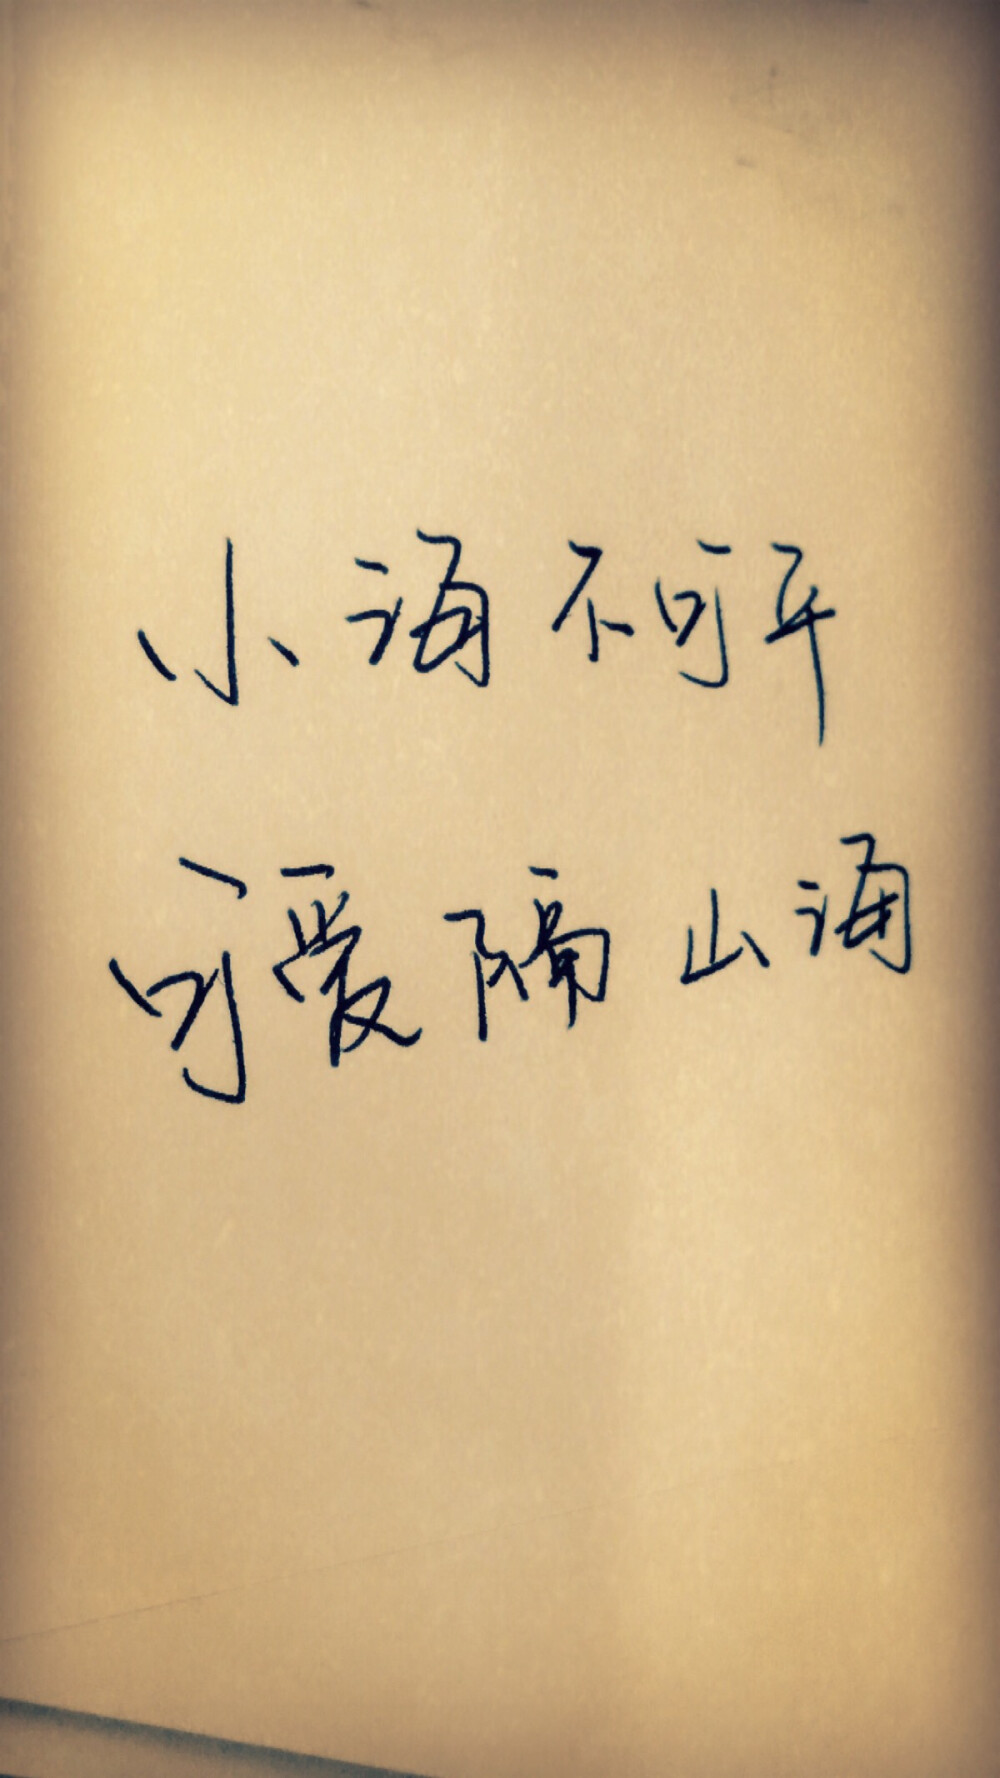 小海不可平
可爱隔山海